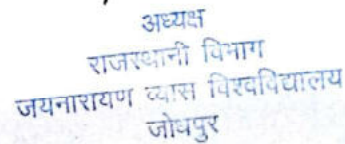 अध्यक्ष
राजस्थानी विभाग
जयनारायण व्यास विश्वविद्यालय
जोधपुर